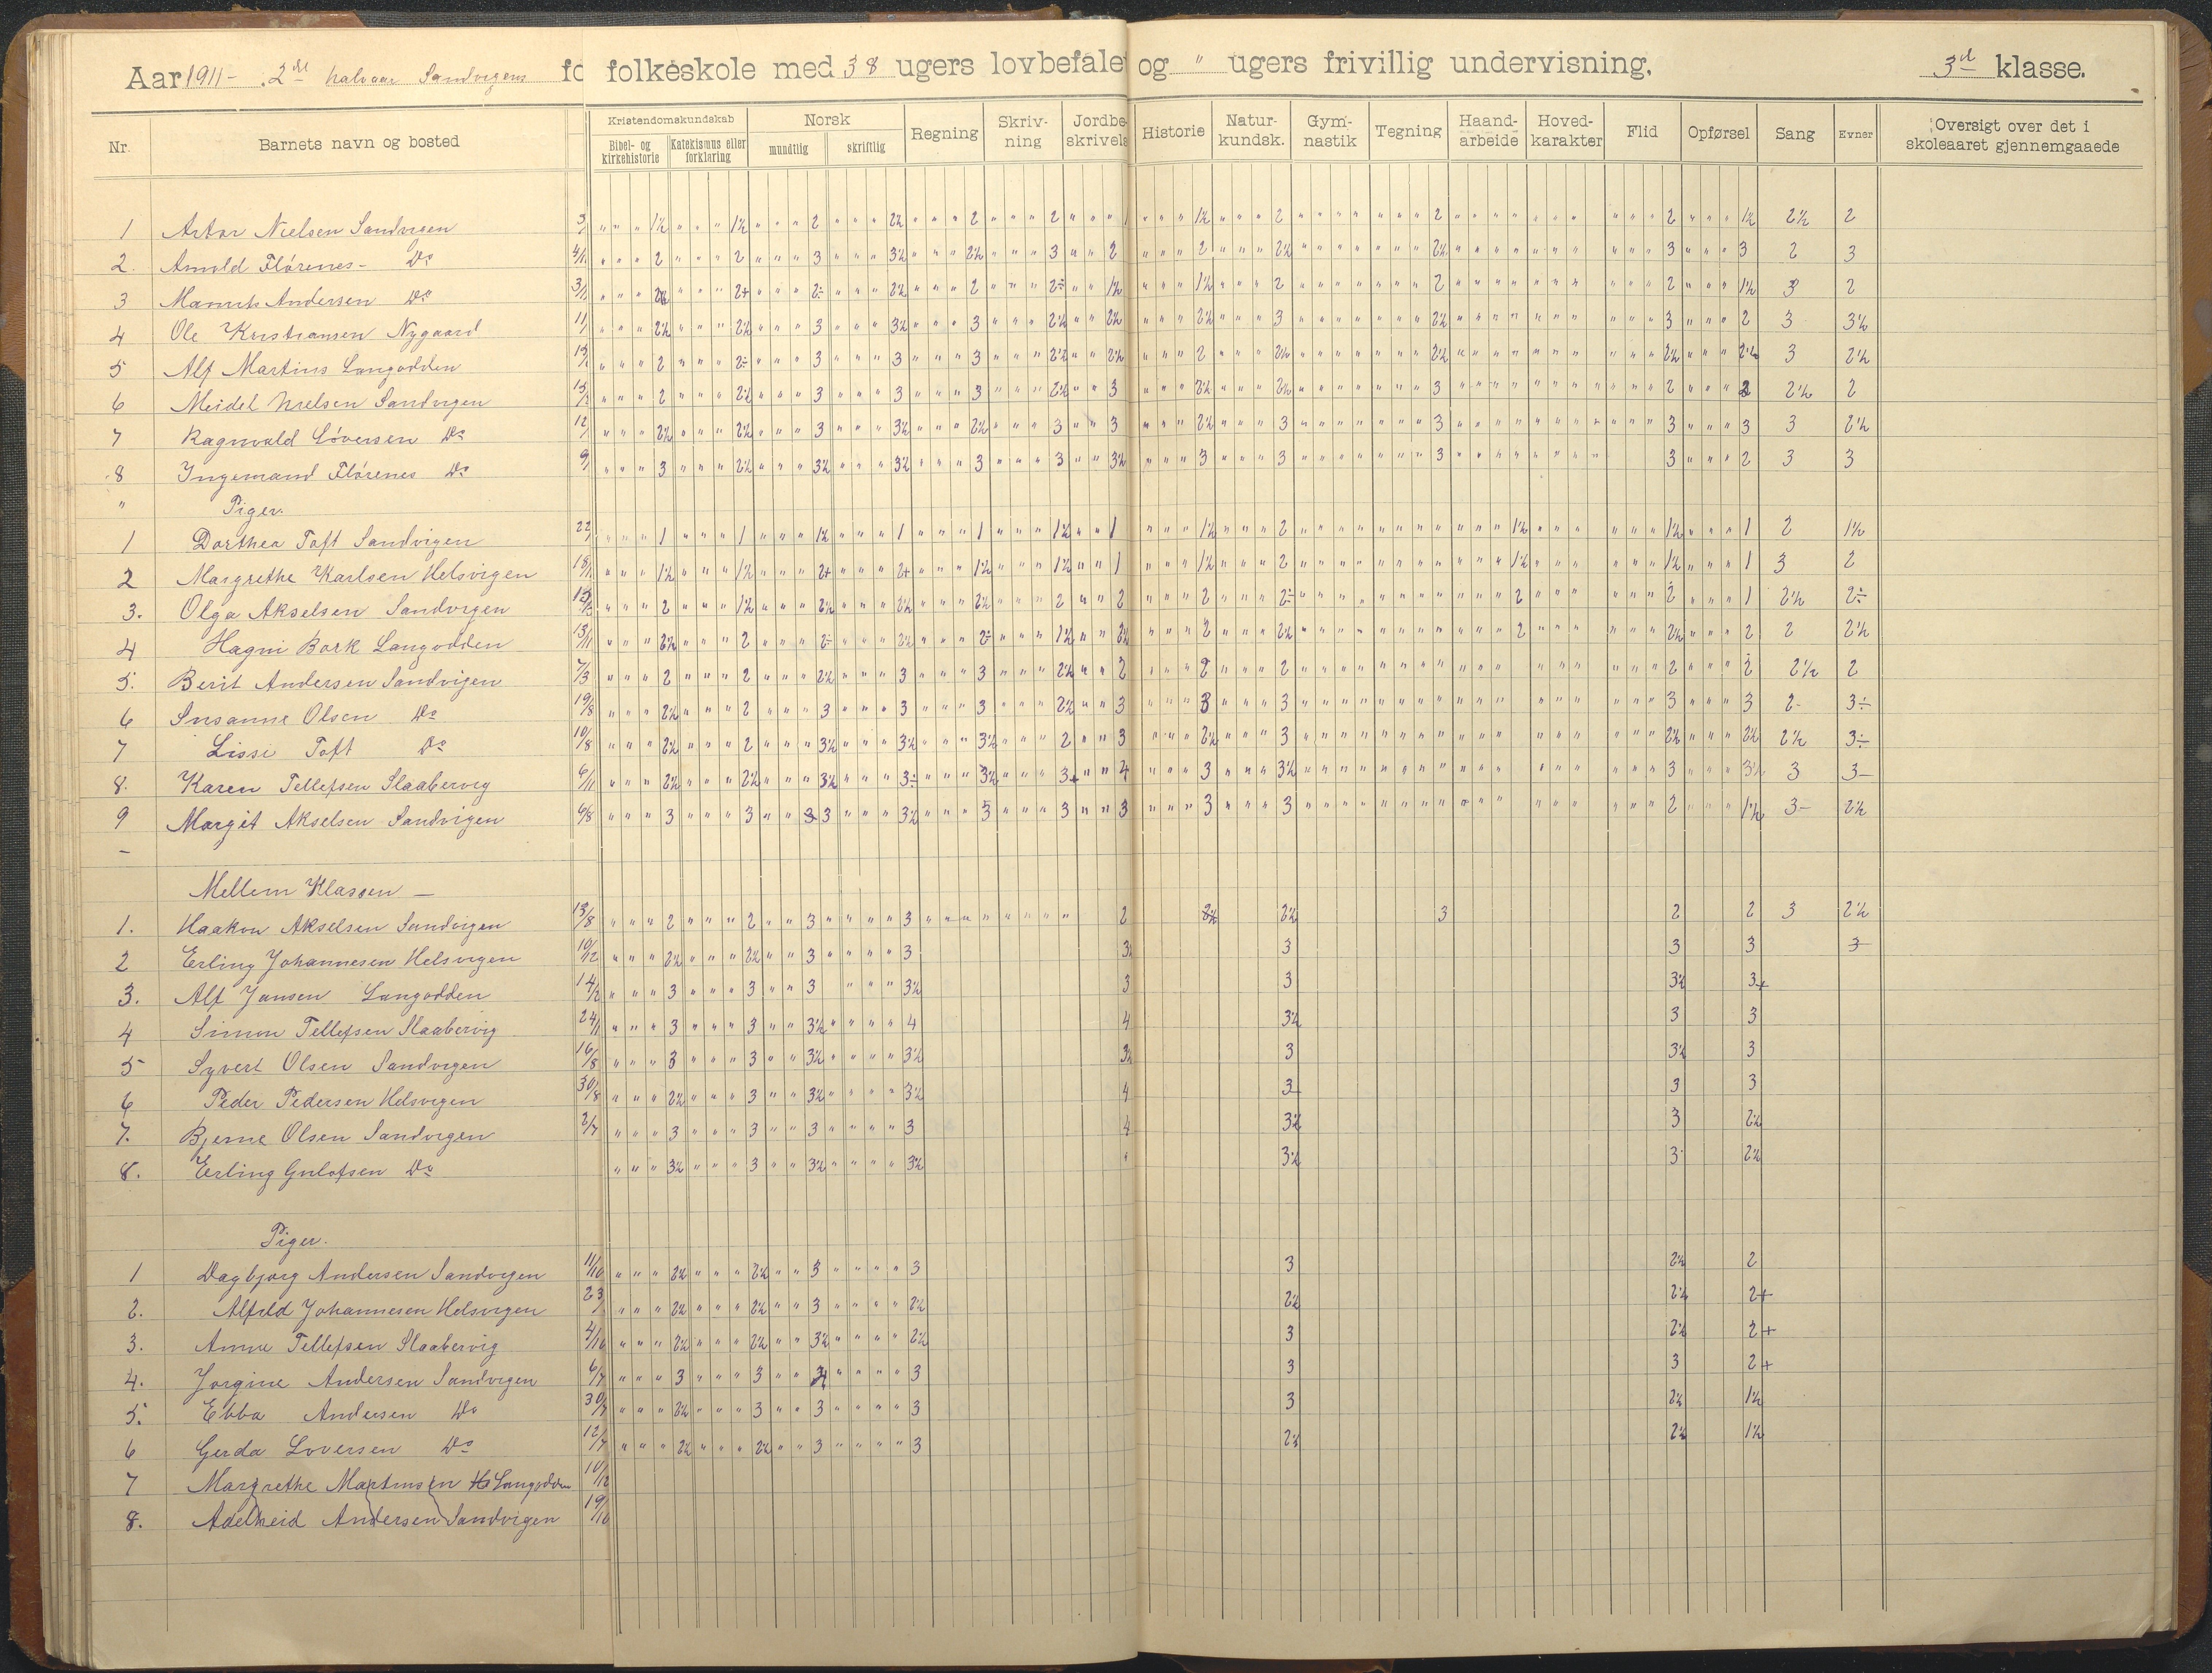 Aar 1911 - 2det halvaar Sandvigens fo folkeskole med 38 ugers lovbefalet og " ugers frivillig undervisning. 3d klasse.
Nr. Barnets navn og bosted Kristendomskundskab Bibel- og kirkehistorie Katekismus eller forklaring Norsk mundtlig skriftlig Regning Skriv-ning Jordbe-skrivels Historie Natur-kundsk. Gym-nastik Tegning Haand-arbeide Hoved-karakter Flid Opførsel Sang Evner Oversigt over det i skoleaaret gjennemgaaede
1 Artor Nielsen Sandvigen 1½ 1½ 2 2½ 2 2 1½ 2 2 2 1½ 2½ 2
2. Arnold Flörenes - Do 4/11 2 2 3 3½ 2½ 3 2 2 2½ 2½ 3 3 2 3
3 Andersen Do 2½ 2+ 2÷ 2½ 2 2÷ 1½ 1½ 2 2 2 1½ 3 2
4 Ole Kristiansen Nygaard 2½ 2½ 3 3½ 3 2½ 2½ 2½ 3 2½ 3 2 3 3½
5 Alf Martins Langodden 2 2÷ 3 3 3 2½ 2½ 2 2½ 2½ 2½ 2½ 3 2½
6 Meidel Nielsen Sandvigen 2 2½ 3 3 3 2½ 3 2½ 2½ 3 2 2 2½ 2
7 Ragnvald Löversen Do 2½ 2½ 3 3½ 2½ 3 3 2½ 3 3 3 3 3 2½
8 Ingemand Flörenes Do 3 2½ 3½ 3½ 3 3 3½ 3 3 3 3 2 3 3
" Piger.
1 Dorthea Toft Sandvigen 1 1 1½ 1 1 1½ 1 1½ 2 1½ 1½ 1 2 1½
2 Margrethe Karlsen Helsvigen 1½ 1½ 2+ 2+ 1½ 1½ 1 1½ 2 1½ 1½ 1 3 2
3. Olga Akselsen Sandvigen 2 1½ 2½ 2½ 2½ 2 2 2 2÷ 2 2 1 2½ 2÷
4 Hagni Bork Langodden 13/11 2½ 2 2÷ 2½ 2÷ 1½ 2½ 2 2½ 2 2½ 2 2 2½
5. Berit Andersen Sandvigen 7/3 2 2 2½ 3 3 2½ 2 2 2 2 2 2½ 2
6 Susanne Olsen Do 19/8 2½ 2 3 3 3 2½ 3 3 3 3 3 2- 3÷
7 Lissi Toft Do 10/8 2½ 2 3½ 3½ 3½ 2 3 2½ 3 2½ 2½ 2½ 3÷
8. Karen Tellefsen Slaabervig 6/11 2½ 2½ 3½ 3÷ 3½ 3+ 4 3 3½ 3 3½ 3 3-
9 Margit Akselsen Sandvigen 6/8 3 3 3 3½ 3 3 3 3 3 2 1½ 3- 2½
-
Mellem Klassen -
1. Haakon Akselsen Sandvigen 13/8 2 2 3 3 2 2½ 2½ 3 2 2 3 2½
2 Erling Johannesen Helsvigen 10/12 2½ 2½ 3 3 3½ 3 3 3 3
3. Alf Jansen Langodden 14/2 3 3 3 3½ 3 3 3½ 3+
4 Simon Tellefsen Slaabervig 24/11 3 3 3½ 4 4 3½ 3 3
5 Syvert Olsen Sandvigen 16/8 3 3 3½ 3½ 3½ 3 3½ 3
6 Peder Pedersen Helsvigen 30/8 2½ 3 3½ 3½ 4 3 3 3
7. Bjerne Olsen Sandvigen 2/7 3 3 3 3 4 3½ 3 2½
8. Erling Gulofsen Do 3½ 3 3½ 3½ 3½ 3 2½
Piger.
1 Dagbjørg Andersen Sandvigen 11/10 2½ 2½ 3 3 3 2½ 2
2. Alfild Johannesen Helsvigen 2½ 2½ 3 2½ 2½ 2½ 2+
3. Anne Tellefsen Slaabervig 4/10 2½ 2½ 3½ 2½ 3 2½ 2+
4. Jorgine Andersen Sandvigen 6/7 3 3 3 3 3 2+
5. Ebba Andersen Do 2½ 3 3 3 3 2½ 1½
6 Gerda Loversen Do 12/7 2½ 2½ 3 3 2½ 2½ 1½
7 Margrethe Martinsen Langodden 10/12
8. Adelheid Andersen Sandvigen 19/10